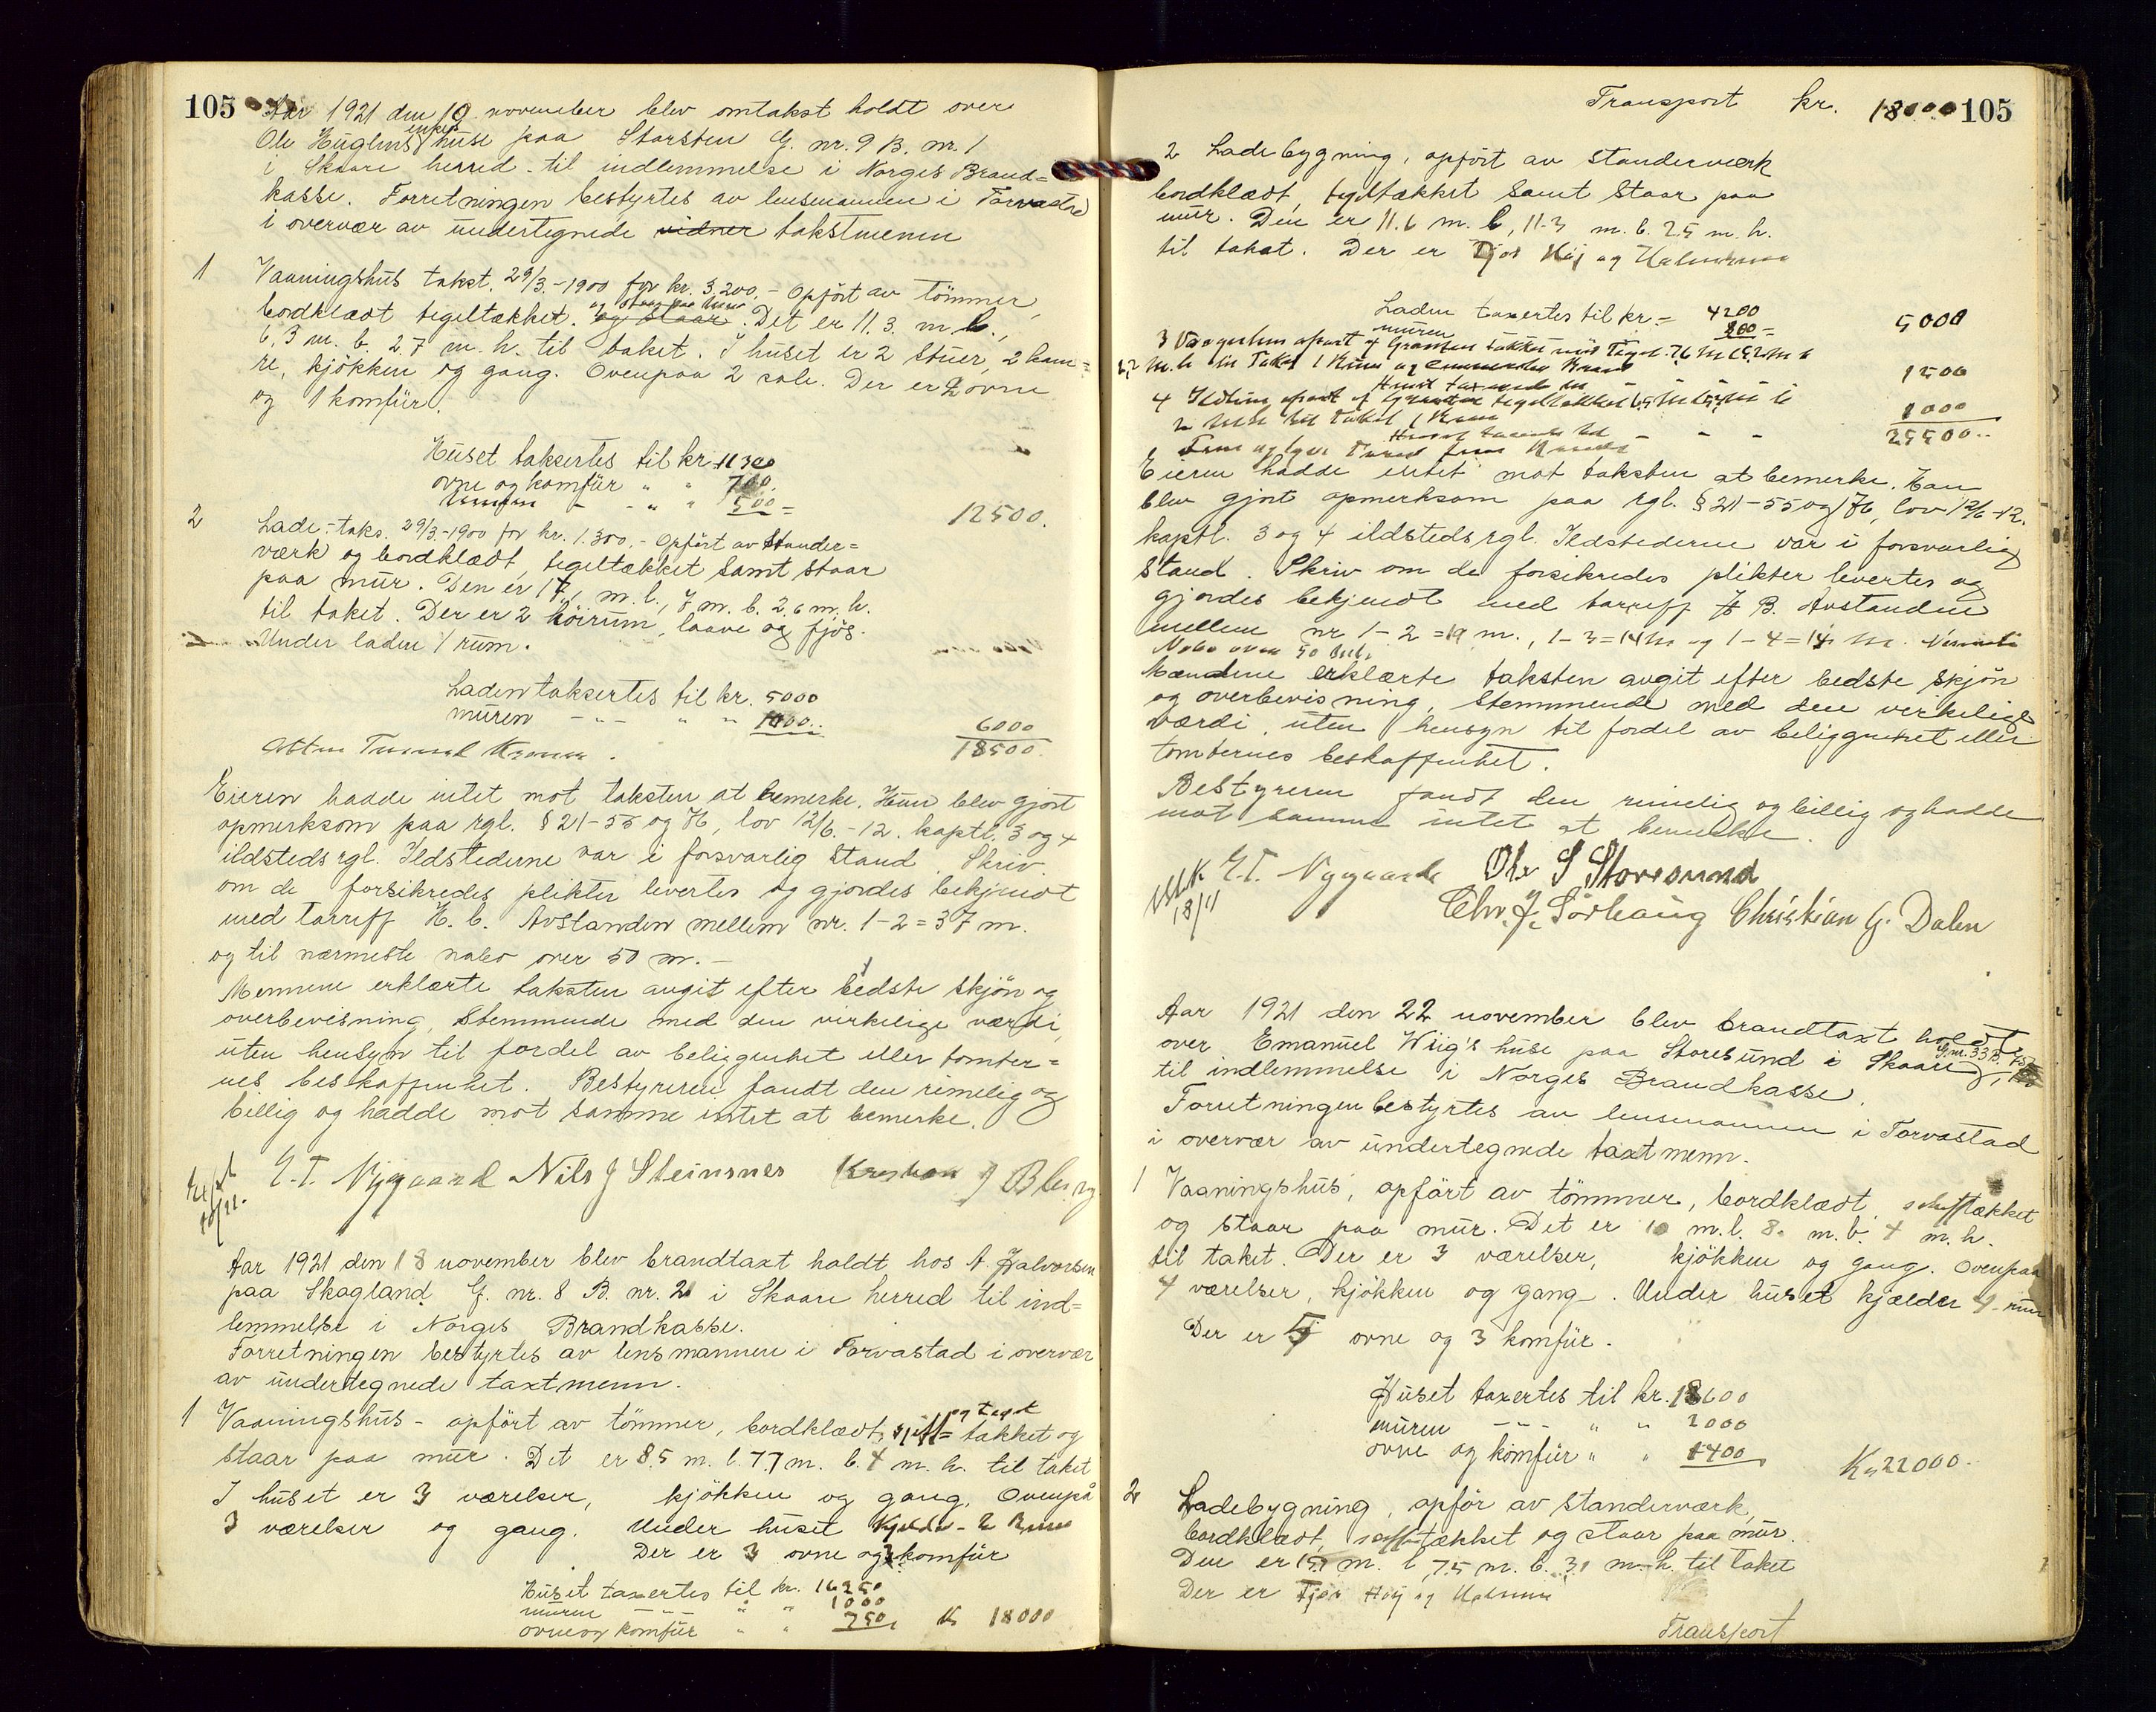 105
Aar 1921 den 10 november blev omtakst holdt over
Ole Huglens enkes huse paa Storsten G. nr. 9 B. nr. 1
i Skaare herred - til indlemmelse i Norges Brand=
kasse. Forretningen bestyrtes av lensmannen i Torvastad
i overvær av undertegnede vidner takstmenn
1 Vaaningshus takst. 29/3.-1900 for kr. 3.200.- Opført av tömmer,
bordklædt tegeltækket. og staar paa mur og staar. Det er 11.3. m. l.,
6,3 m. b. 2.7 m. h. til taket. I huset er 2 stuer, 2 kam=
re, kjökken og gang. Ovenpaa 2 sale. Der er 2 ovne
og 1 komfür.
Hüset taksertes til kr. 11300
ovne og komfür " " 700.
- " " 500 =
12500.
2 Lade - taks. 29/3.-1900 for kr. 1.300.- Opført av stander=
værk og bordklædt, tegeltækket samt staar
paa mür. Den er 17, m. l., 7 m. b. 2.6 m. h.
til taket. Der er 2 höirüm, laave og fjös.
Under laden 1 rum.
Laden taksertes til kr. 5000
müren - " - " " 1000..
6000
18500.
Atten Tusend Kroner.
Eieren hadde intet mot taksten at bemerke. Hun blev gjort
opmerksom paa rgl. § 21-55 og 76, lov 12/6.-12. kaptl. 3 og 4
ildstedsrgl. Ildstederne var i forsvarlig stand. Skriv.
om de forsikredes plikter levertes og gjordes bekjendt
med tarriff H. b. Avstanden mellem nr. 1-2 = 37 m.
og til nærmeste nabo over 50 m. -
Mennene erklærte taksten avgit efter bedste skjön og
overbevisning, stemmende med den virkelige værdi,
üten hensyn til fordel av beliggenhet eller tomter=
nes beskaffenhet. Bestyreren fandt den rimelig og
billig og hadde mot samme intet at bemerke.
E. T. Nygaard Nils J Steinsnes Kristian J
Aar 1921 den 18 november blev brandtaxt holdt hos A. Halvorsen
paa Skagland G. nr. 8 B. nr. 21 i Skaare herred til ind=
lemmelse i Norges Brandkasse.
Forretningen bestyrtes av lensmannen i Torvastad i overvær
av undertegnede taxtmenn.
1 Vaaningshüs - opført av tömmer, bordklædt, skiff= og tegel takket og
staar paa mür. Det er 8.5 m. l. 7.7 m. b. 4 m. h. til taket
I hüset er 3 værelser, kjökken og gang, Ovenpå
3 værelser og gang. Under hüset Kjelder - 2 Rum
Der er 3 ovne og 2 komfür
Hüset taxertes til kr. 16250
mürene - " - " " 1000
ovne og komfür " " 750 Kr 18000
Transport kr. 18000
105
2 Ladebygning, opført av standerværk
bordklædt, tegltækket samt staar paa
mür. Den er 11.6 m. l, 11.3 m. b. 2.5 m. h.
til taket. Der er Fjøs Høj og
Laden taxertes til kr. = 4200
müren 800 =
5000
3 Vognhus opført af tækket med Tegel. 7,6 m l 5,2 m b
2,2 m. h til Taket 1 Rum og
1500
4 Ildhus opført af tegeltækket
2 m h til Taket 1 Rum
1000
25500..
Fem og tyve Tusend fem
Eieren hadde intet mot taksten at bemerke. Han
blev gjort opmerksom paa rgl. § 21-55 og 76, lov 12/6-12.
kaptl. 3 og 4 ildstedsrgl. Ildstederne var i forsvarlig
stand. Skriv om de forsikredes plikter levertes og
gjordes bekjendt med tarriff H B. Avstanden
mellem nr 1-2 = 19 m., 1-3 = 14 m og 1-4 = 14 m.
Nabo over 50
Mændene erklærte taksten avgit efter bedste skjön
og overbevisning, stemmende med den verkelige
værdi, üten hensyn til fordel av beliggenhet eller
tomternes beskaffenhet.
Bestyreren fandt den rimelig og billig og hadde
mot samme intet at bemerke.
18/11
E. T. Nygaard Ole S Storesund
Chr. J. Sörhaüg Christian G. Dalen
Aar 1921 den 22 november blev brandtaxt holdt
over Emanüel Wiig's hüse paa Storesünd i Skaare G. nr. 33 B.
til indlemmelse i Norges Brandkasse.
Forretningen bestyrtes av lensmannen i Torvastad
i overvær av ündertegnede taxtmenn.
1 Vaaningshüs, opført av tömmer, bordklædt, skiftækket
og staar paa mür. Det er 10 m. l. 8. m. b. 4 m. h.
til taket. Der er 3 værelser, kjökken og gang. Ovenpaa
4 værelser, kjökken og gang. Under hüset kjælder 4 rum
Der er 5 ovne og 3 komfür.
Hüset taxertes til kr. 18600
müren - " - " " 2000
ovne og komfür " " 1400
Kr 22000.-
2 Ladebygning, opför av standerværk,
bordklædt, skiftækket og staar paa mür.
Den er m. l, 7.5 m. b. 3.0 m. h. til taket
Der er Fjøs Høj og
Transport